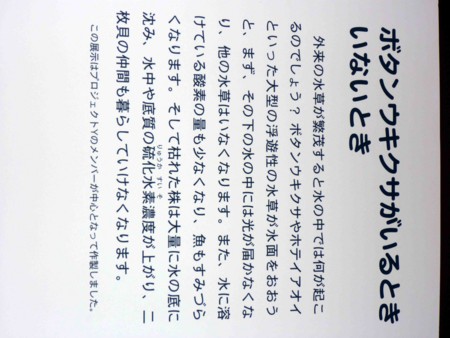 ボタンウキクサがいるとき
いないとき
外来の水草が繁茂すると水の中では何が起こ
るのでしょう？ボタンウキクサやホテイアオイ
といった大型の浮遊性の水草が水面をおおう
と、まず、その下の水の中には光が届かなくな
り、他の水草はいなくなります。また、水に溶
けている酸素の量も少なくなり、魚もすみづら
くなります。そして枯れた株は大量に水の底に
沈み、水中や底質の硫化水素濃度が上がり、二
りゅうか すいそ
枚貝の仲間も暮らしていけなくなります。
この展示はプロジェクトYのメンバーが中心となって作製しました。